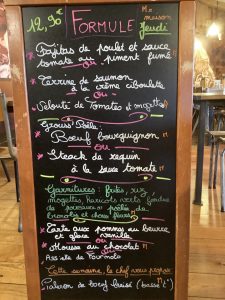 12,90€ FORMULE
Jeudi
Fajitas de poulet et sauce
tomate au piment fumé
ou
Terrine de saumon
à la crème ciboulette
ou
Velouté de Tomates et mogettes
Grosse Poêle:
Bœuf bourguignon
ou
Steack de requin
à la sauce tomate
Garnitures: frites, riz,
mogettes, haricots verts, fondue
de poireaux, poêlée de
brocolis et choux fleurs
Tarte aux pommes au beurre
et glace vanille
ou
Mousse au chocolat
ou
Assiette de fourmola
Cette semaine, le chef vous propose:
de bœuf braisé